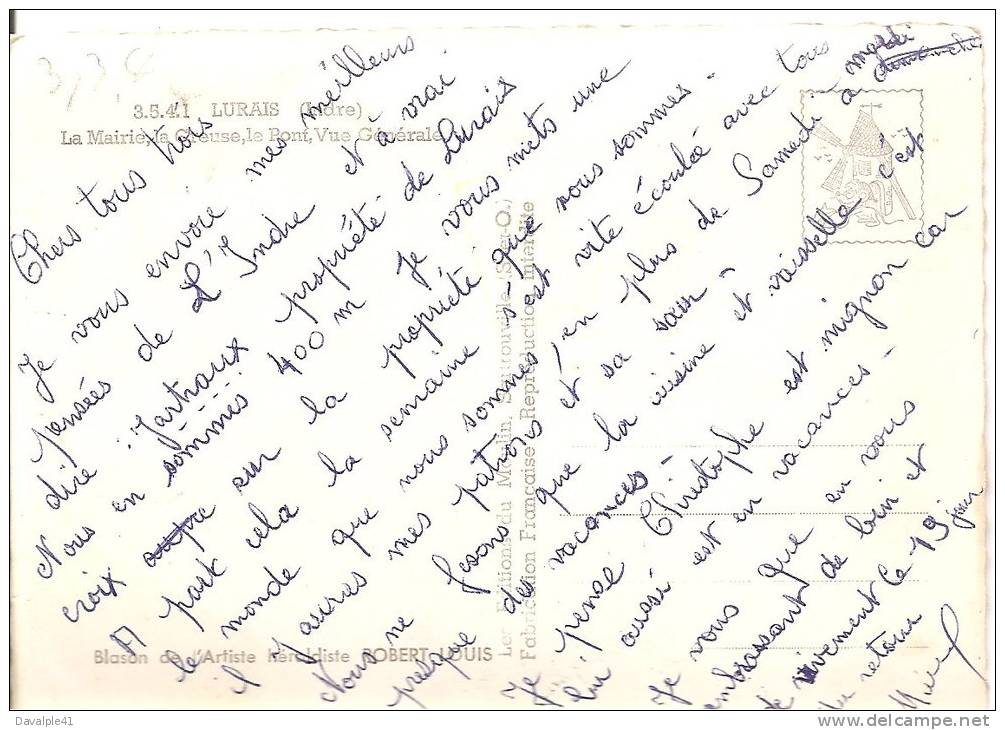 3.5.41 LURAIS (Indre)
La Mairie, la Creuse, le Pont, Vue Générale
Chers tous trois
Je vous envoie mes meilleurs
pensées de L'Indre et à vrai
dire "Jartraux propriété de Lurais
Nous en sommes 400 m Je vous mets une
croix sur la propriété que nous sommes-
A part cela la semaine s'est vite écoulée avec tous
le monde que nous sommes, en plus de Samedi à mardi
il y aures mes patrons et sa sœur"
Nous ne fesons que la cuisine et vaisselle c'est
presque des vacances-
Je pense Christophe est mignon car
lui aussi est en vacances-
Je vous que en vous
embrassant de loin et
vivement le 19 jour
du retour
Les Editions du Moulin, Sartrouville (S.-et-O.)
Fabrication Française - Reproduction interdite
Blason de l'Artiste héraldiste ROBERT LOUIS
Davalple41
http://www.delcampe.net